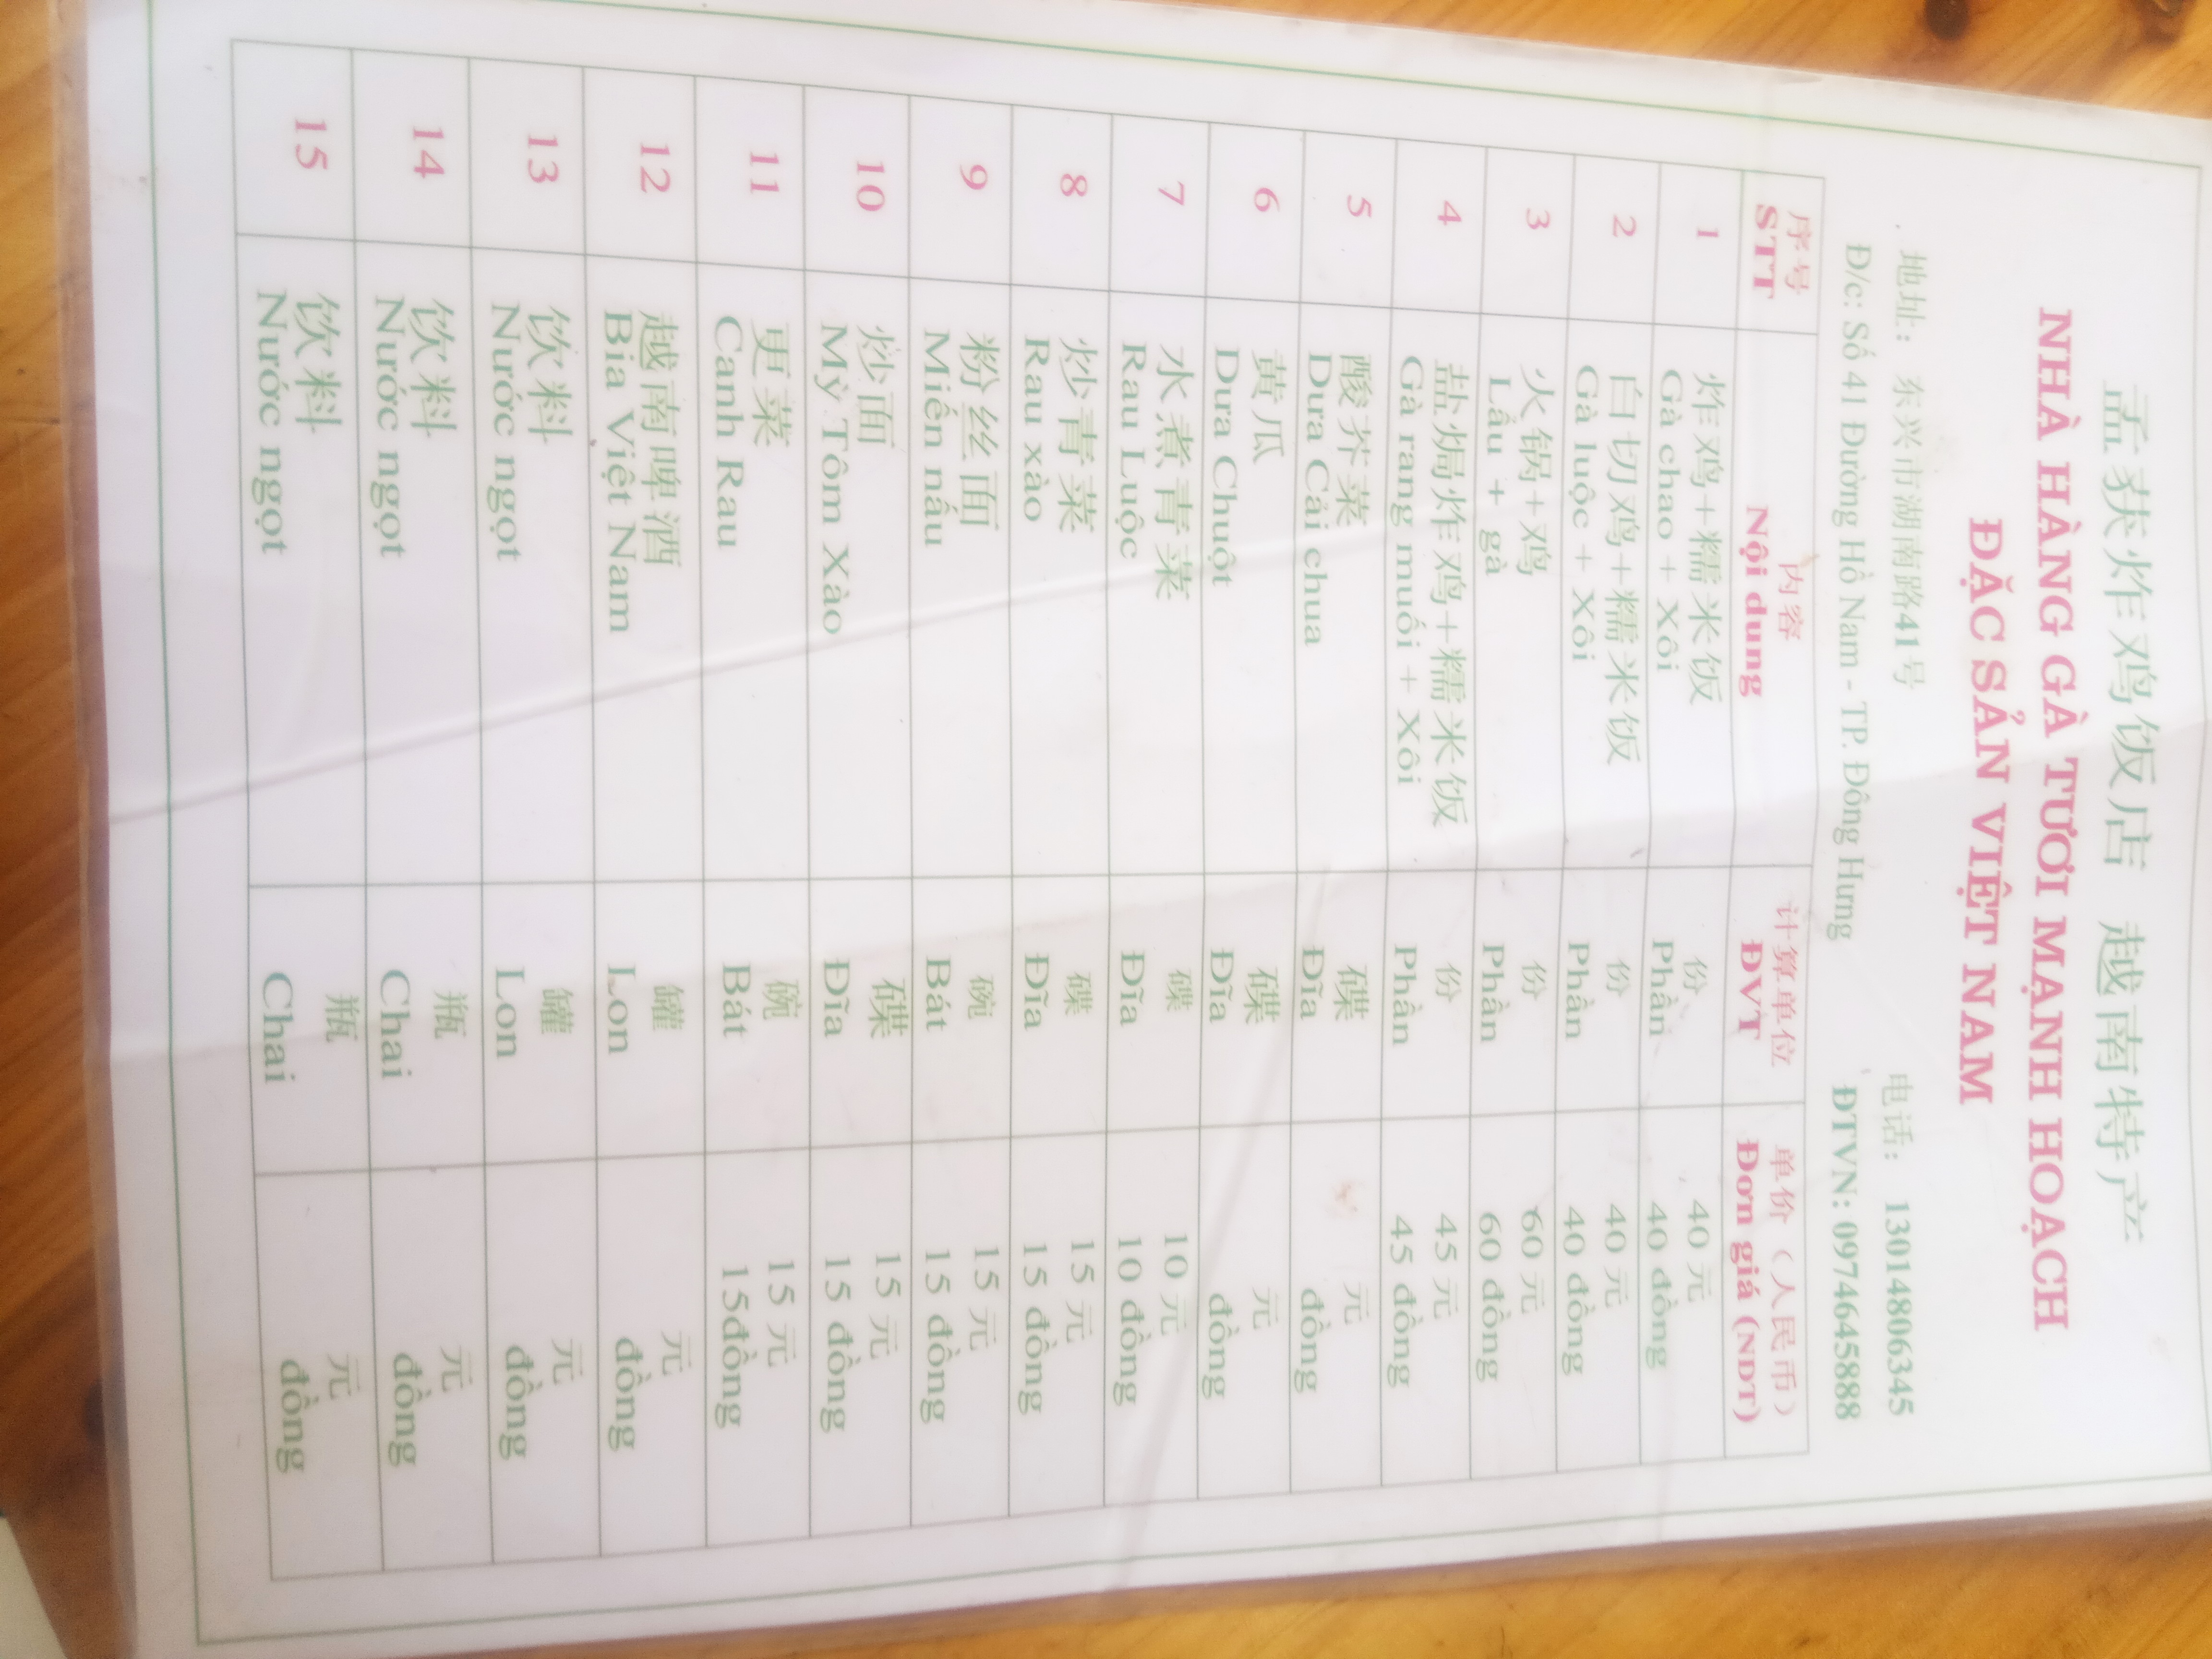 孟获炸鸡饭店 越南特产
NHÀ HÀNG GÀ TƯƠI MẠNH HOẠCH
ĐẶC SẢN VIỆT NAM
地址: 东兴市湖南路41号 电话: 13014806345
Đ/c: Số 41 Đường Hồ Nam - TP. Đông Hưng ĐTVN: 0974645888
序号 内容 计算单位 单价（人民币）
STT Nội dung ĐVT Đơn giá (NDT)
1 炸鸡+糯米饭 份 40 元
Gà chao + Xôi Phần 40 đồng
2 白切鸡+糯米饭 份 40 元
Gà luộc + Xôi Phần 40 đồng
3 火锅+鸡 份 60 元
Lẩu + gà Phần 60 đồng
4 盐焗炸鸡+糯米饭 份 45 元
Gà rang muối + Xôi Phần 45 đồng
5 酸芥菜 碟 元
Dưa Cải chua Đĩa đồng
6 黄瓜 碟 元
Dưa Chuột Đĩa đồng
7 水煮青菜 碟 10 元
Rau Luộc Đĩa 10 đồng
8 炒青菜 碟 15 元
Rau xào Đĩa 15 đồng
9 粉丝面 碗 15 元
Miến nấu Bát 15 đồng
10 炒面 碟 15 元
Mỳ Tôm Xào Đĩa 15 đồng
11 更菜 碗 15 元
Canh Rau Bát 15đồng
12 越南啤酒 罐 元
Bia Việt Nam Lon đồng
13 饮料 罐 元
Nước ngọt Lon đồng
14 饮料 瓶 元
Nước ngọt Chai đồng
15 饮料 瓶 元
Nước ngọt Chai đồng